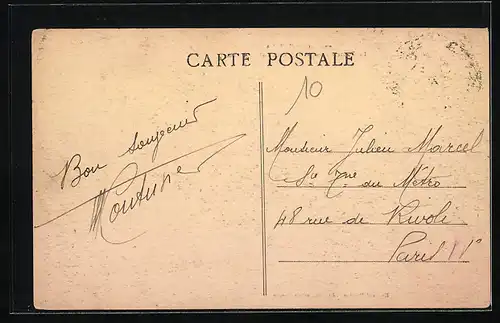 CARTE POSTALE
10
Bon souvenir
Monsieur Julien Marcel
du Métro
48 rue de Rivoli
Paris